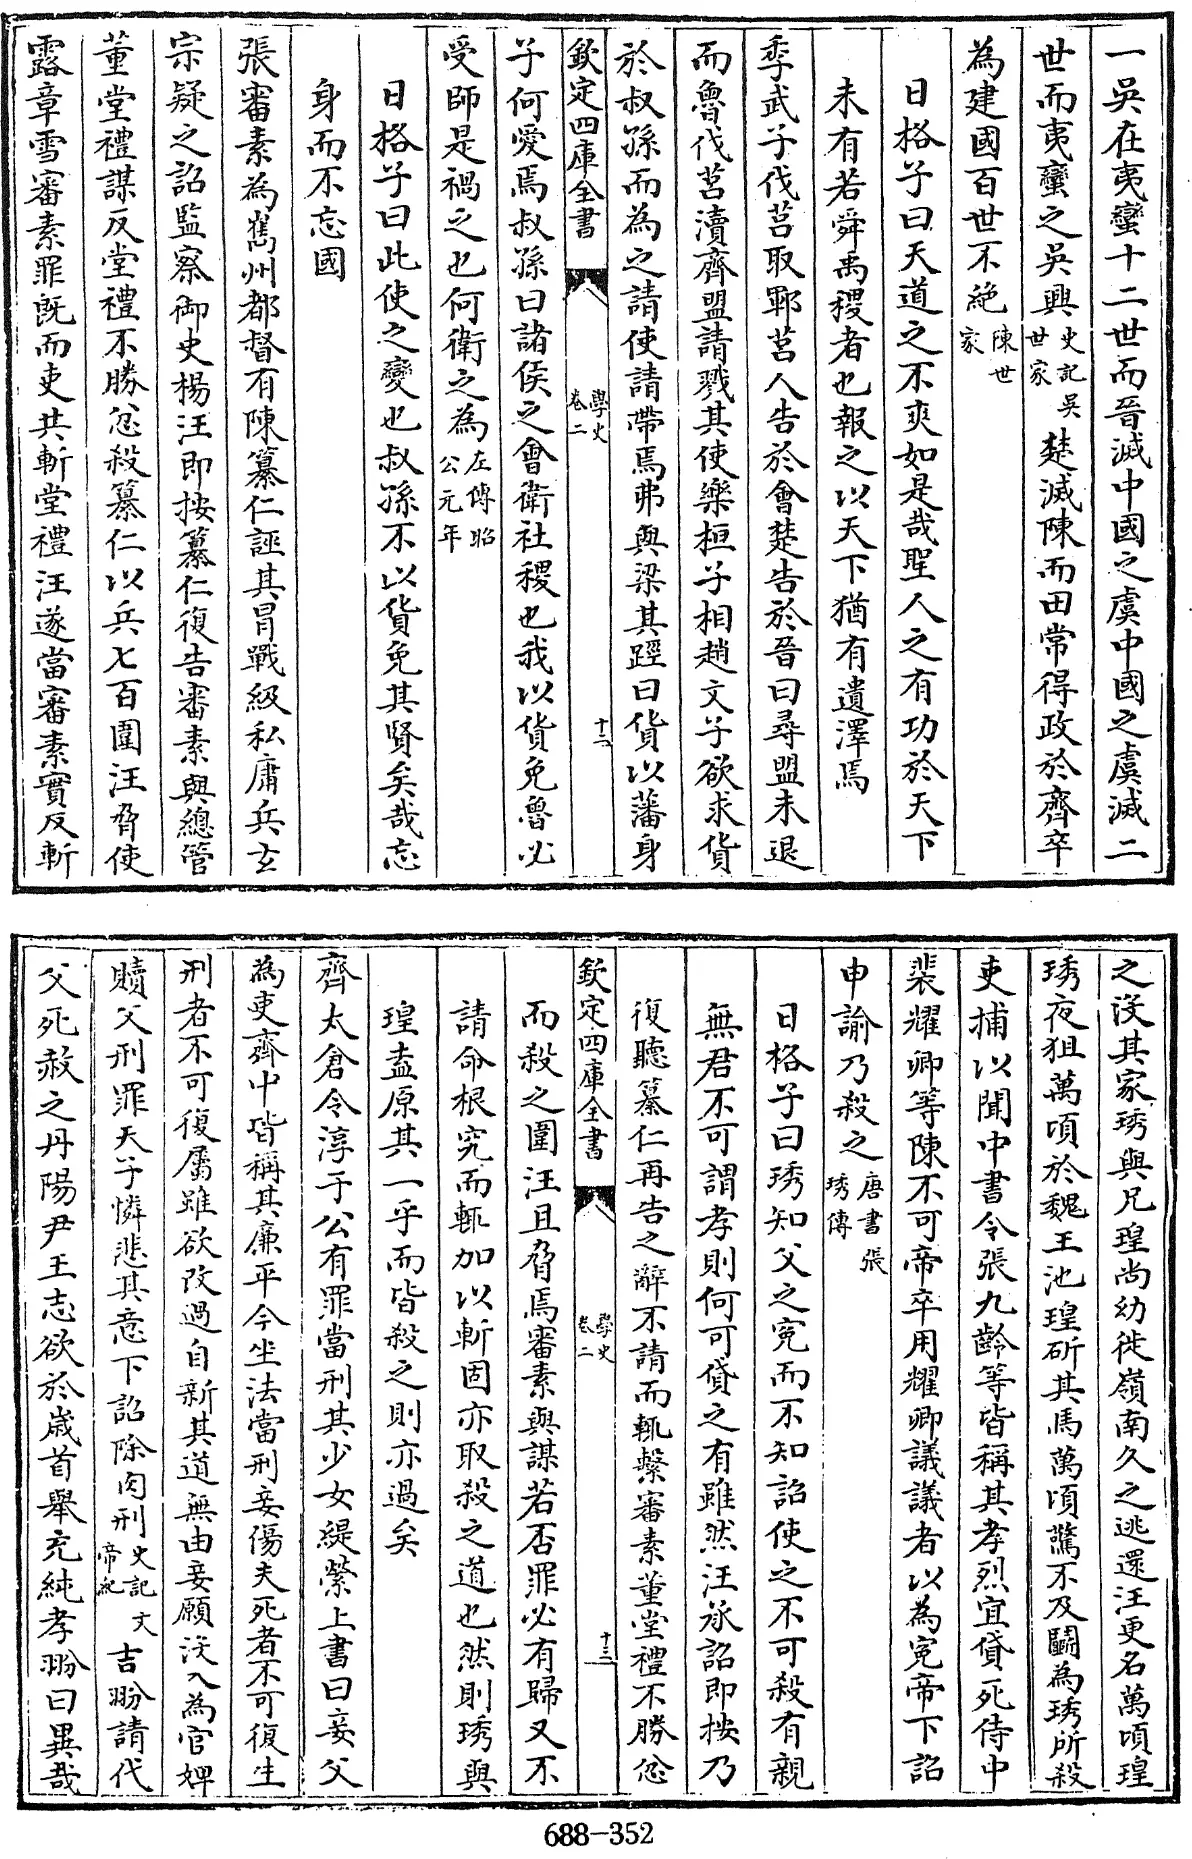 一吳在夷蠻十二世而晉滅中國之虞中國之虞滅二
世而夷蠻之吳興史記吳世家楚滅陳而田常得政於齊卒
為建國百世不絶陳世家
日格子曰天道之不爽如是哉聖人之有功於天下
未有若舜禹稷者也報之以天下猶有遺澤焉
季武子伐莒取鄆莒人告於會楚告於晉曰尋盟未退
而魯伐莒瀆齊盟請戮其使樂桓子相趙文子欲求貨
於叔孫而為之請使請帶焉弗與梁其踁曰貨以藩身
欽定四庫全書 學史卷二 十二
子何愛焉叔孫曰諸侯之會衛社稷也我以貨免魯必
受師是禍之也何衛之為左傳昭公元年
日格子曰此使之變也叔孫不以貨免其賢矣哉忘
身而不忘國
張審素為嶲州都督有陳纂仁誣其冒戰級私庸兵玄
宗疑之詔監察御史楊汪即按纂仁復告審素與總管
董堂禮謀反堂禮不勝忿殺纂仁以兵七百圍汪脅使
露章雪審素罪既而吏共斬堂禮汪遂當審素實反斬
之沒其家琇與兄瑝尚幼徙嶺南久之逃還汪更名萬頃瑝
琇夜狙萬頃於魏王池瑝斫其馬萬頃驚不及鬭為琇所殺
吏捕以聞中書令張九齡等皆稱其孝烈宜貸死侍中
裴耀卿等陳不可帝卒用耀卿議議者以為寃帝下詔
申諭乃殺之唐書張琇傳
日格子曰琇知父之寃而不知詔使之不可殺有親
無君不可謂孝則何可貸之有雖然汪承詔即按乃
復聽纂仁再告之辭不請而輒繫審素董堂禮不勝忿
欽定四庫全書 學史卷二 十三
而殺之圍汪且脅焉審素與謀若否罪必有歸又不
請命根究而輒加以斬固亦取殺之道也然則琇與
瑝盍原其一乎而皆殺之則亦過矣
齊太倉令淳于公有罪當刑其少女緹縈上書曰妾父
為吏齊中皆稱其廉平今坐法當刑妾傷夫死者不可復生
刑者不可復屬雖欲改過自新其道無由妾願沒入為官婢
贖父刑罪天子憐悲其意下詔除肉刑史記文帝紀吉翂請代
父死赦之丹陽尹王志欲於歲首舉充純孝翂曰異哉
688-352